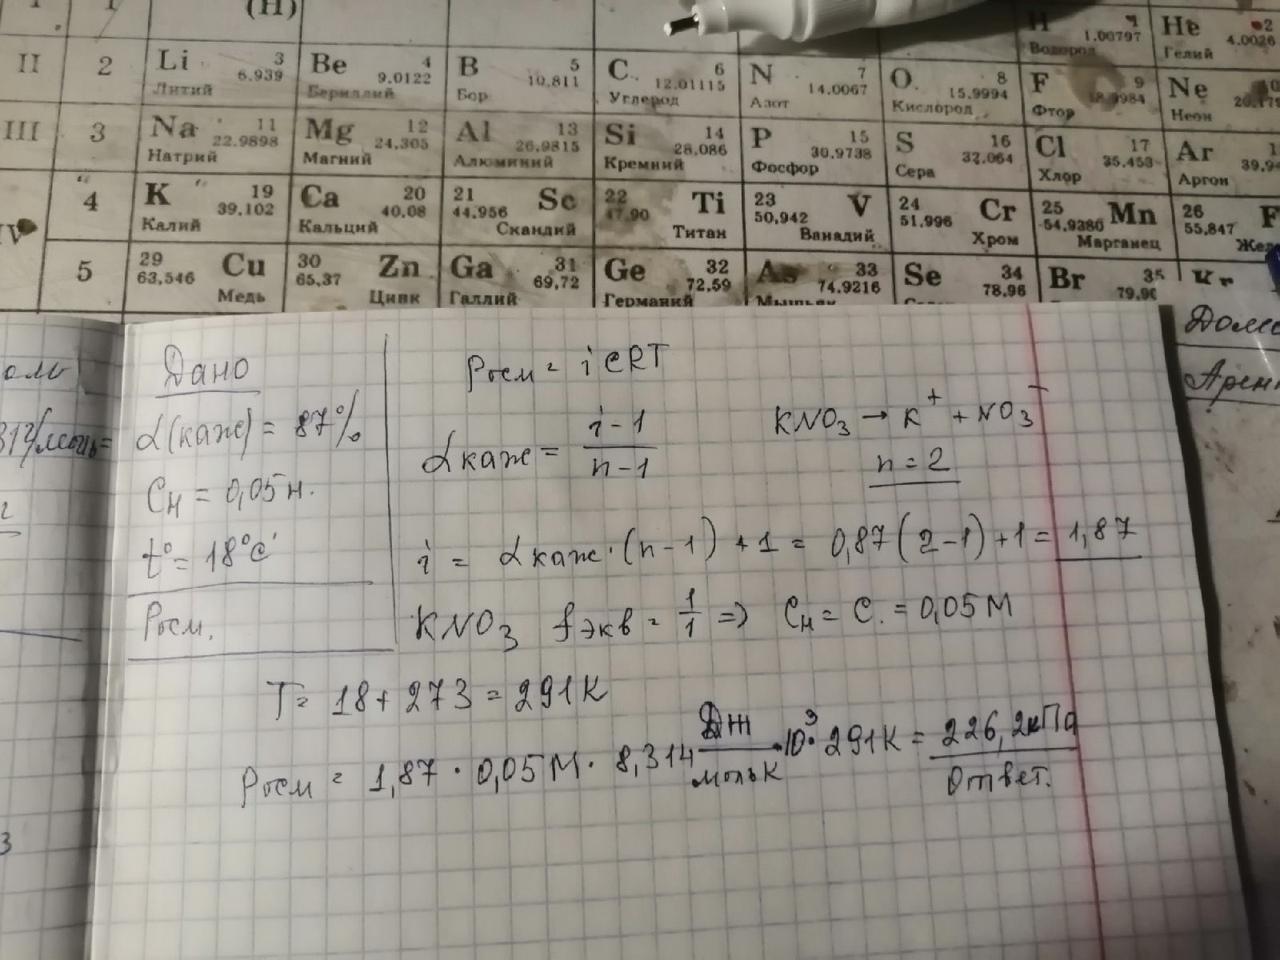 I 1 (H) H 1 1.00797 Водород He 2 4.0026 Гелий
II 2 Li 3 6.939 Литий Be 4 9.0122 Бериллий B 5 10,811 Бор C 6 12.01115 Углерод N 7 14.0067 Азот O 8 15.9994 Кислород F 9 18.9984 Фтор Ne 10 20.179 Неон
III 3 Na 11 22.9898 Натрий Mg 12 24,305 Магний Al 13 26,9815 Алюминий Si 14 28,086 Кремний P 15 30,9738 Фосфор S 16 32,064 Сера Cl 17 35,453 Хлор Ar Аргон
IV 4 K 19 39,102 Калий Ca 20 40,08 Кальций 21 Sc 44,956 Скандий 22 Ti 47,90 Титан 23 V 50,942 Ванадий 24 Cr 51,996 Хром 25 Mn 54,9380 Марганец 26 55,847
5 29 Cu 63,546 Медь 30 Zn 65,37 Цинк Ga 31 69,72 Галлий Ge 32 72,59 Германий As 33 74,9216 Мышьяк Se 34 78,96 Br 35 79,90 Kr
Дано
α(каж) = 87%
Cн = 0,05н.
t° = 18°C
Росм.
Росм = iCRT
αкаж = i-1 / n-1
KNO₃ → K⁺ + NO₃⁻
n = 2
i = αкаж·(n-1)+1 = 0,87(2-1)+1 = 1,87
KNO₃ fэкв = 1/1 => Cн = C. = 0,05М
T = 18+273 = 291K
Росм = 1,87 · 0,05М · 8,314 Дж/мольК ·10³· 291К = 226,2кПа
Ответ.